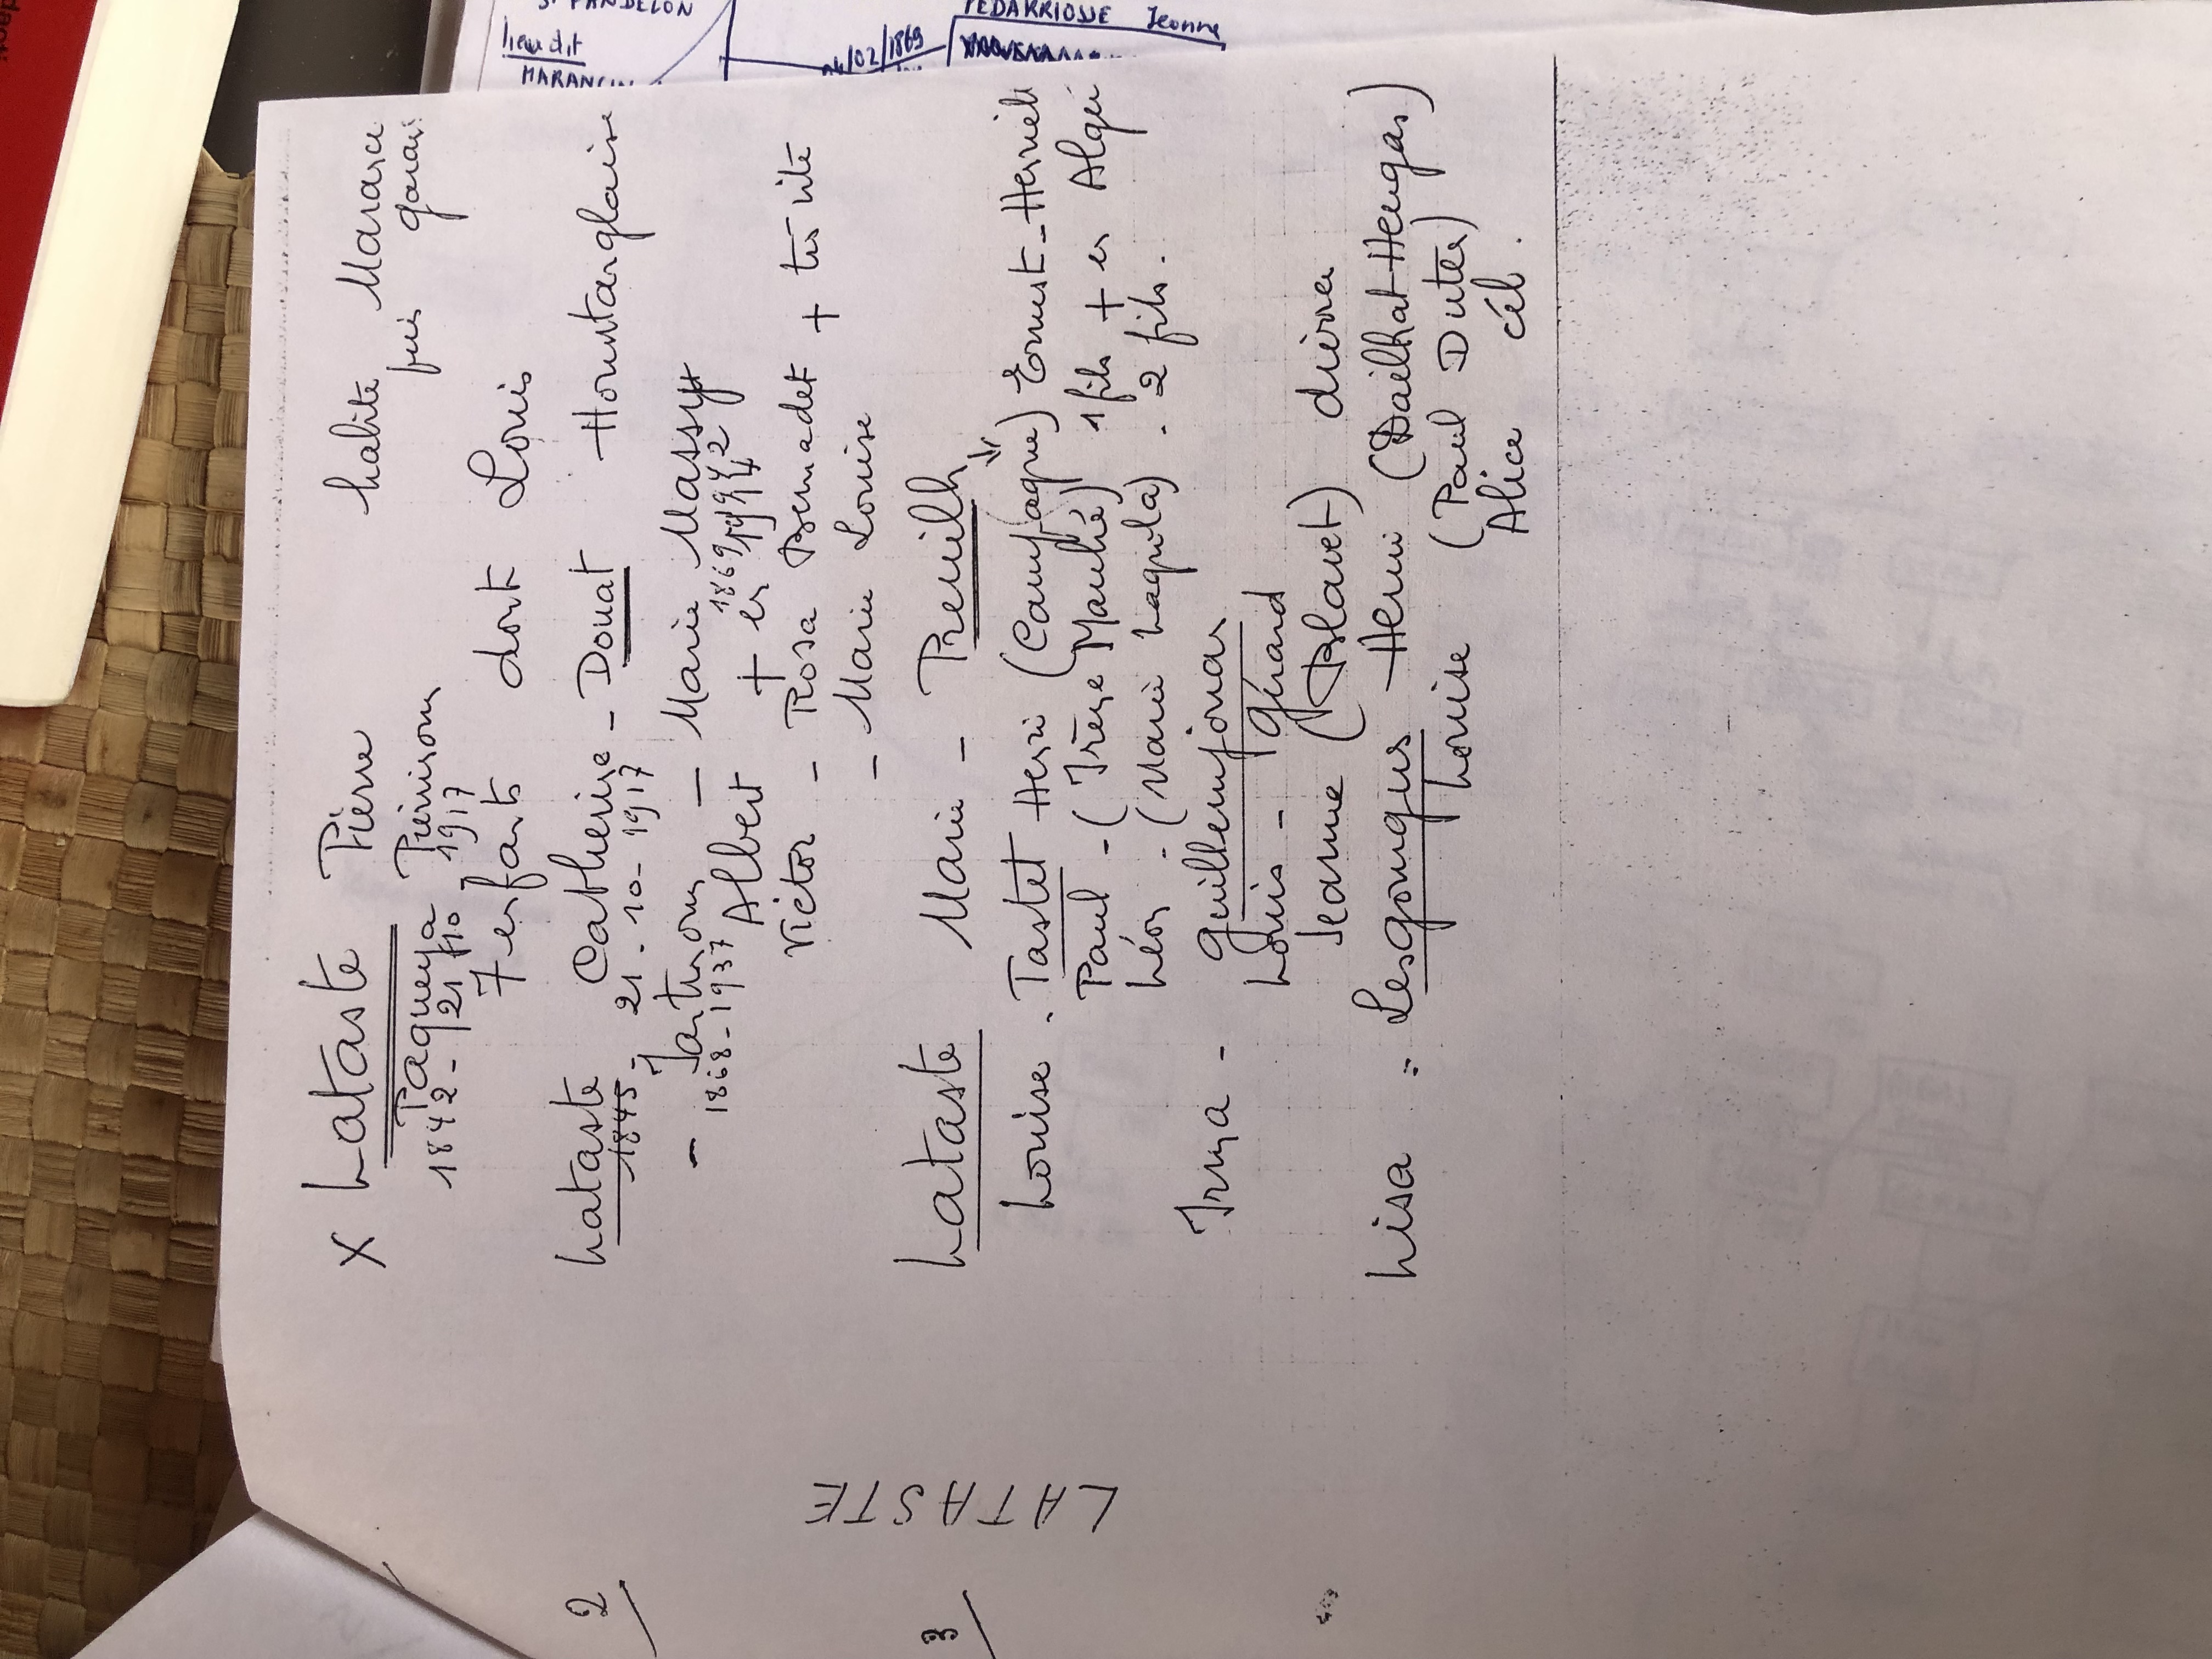 Sᵗ PANDELON
lieu dit
MARANCIN
04/02/1869
PEDARRIOSSE Jeanne
X Lataste Pierre habite Marance
Paqueyra Peirison puis
1842 - 21 10 1917
7 enfants dont Louis
2/ Lataste Catherine - Douat Hountanglaise
1845 - 21 - 10 - 1917
- Janthson - Marie Massy
1868 - 1937 1869
Albert + en
Victor - Rosa Bernadet + très vite
- Marie Louise
LATASTE
3/ Lataste Marie - Preuilh
Louise . Tastet Henri (Campagne) Ernest - Henriett
Paul - (Irène Mauhé) 1 fils + en Algéri
Léon - (Marie Laguila) . 2 fils .
Irma - Guillemjonas
Louis - Gérard
Jeanne (Blavet) divorce
Lisa = Lesgourgues Henri (Dailhat-Heugas)
Louise (Paul Duter)
Alice céb .